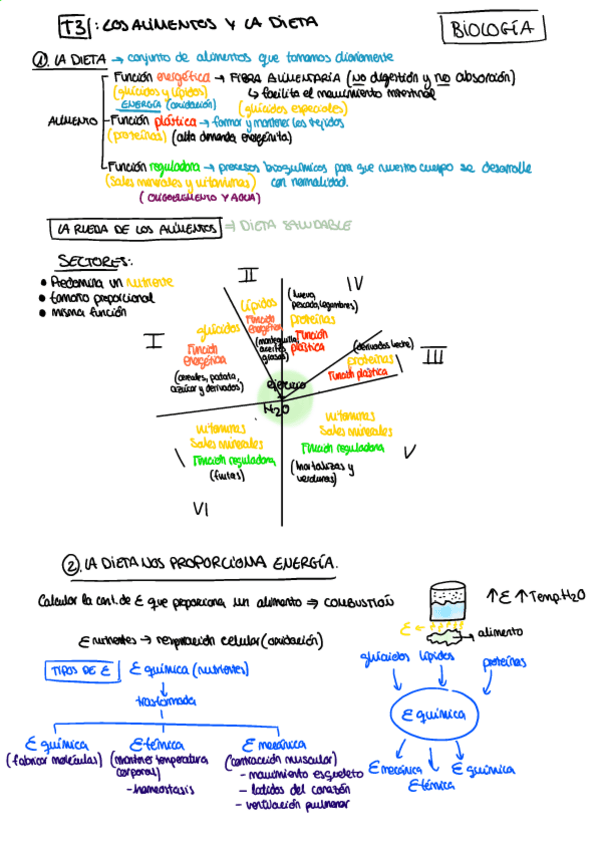 T3: LOS ALIMENTOS Y LA DIETA
BIOLOGÍA
1. LA DIETA → conjunto de alimentos que tomamos diariamente
ALIMENTO
Función energética → FIBRA ALIMENTARIA (NO digestión y no absorción)
(glúcidos y lípidos) ↳ facilita el movimiento intestinal
ENERGÍA (oxidación) (glúcidos especiales)
Función plástica → formar y mantener los tejidos
(proteínas) (alta demanda energética)
Función reguladora → procesos bioquímicos para que nuestro cuerpo se desarrolle
(Sales minerales y vitaminas) con normalidad.
(OLIGOELEMENTO Y AGUA)
LA RUEDA DE LOS ALIMENTOS ⇒ DIETA SALUDABLE
SECTORES:
• Predomina un nutriente
• tamaño proporcional
• misma función
I
glúcidos
Función
energética
(cereales, patata,
azúcar y derivados)
II
lípidos
Función
energética
(mantequilla,
aceites
grasas)
IV
(huevo,
pescado, legumbres)
proteínas
Función
plástica
(derivados leche)
proteínas
Función plástica
III
ejercicio
H2O
vitaminas
Sales minerales
Función reguladora
(frutas)
VI
vitaminas
Sales minerales
Función reguladora
(hortalizas y
verduras)
V
2. LA DIETA NOS PROPORCIONA ENERGÍA.
Calcular la cant. de E que proporciona un alimento ⇒ COMBUSTIÓN
↑E ↑Temp.H2O
E ←
→ alimento
E nutrientes → respiración celular (oxidación)
TIPOS DE E
E química (nutrientes)
trasformada
E química
(fabricar moléculas)
E térmica
(mantner temperatura
corporal)
- homeostasis
E mecánica
(contracción muscular)
- movimiento esqueleto
- latidos del corazón
- ventilación pulmonar
glúcidos lípidos proteínas
E química
E mecánica
E térmica
E química